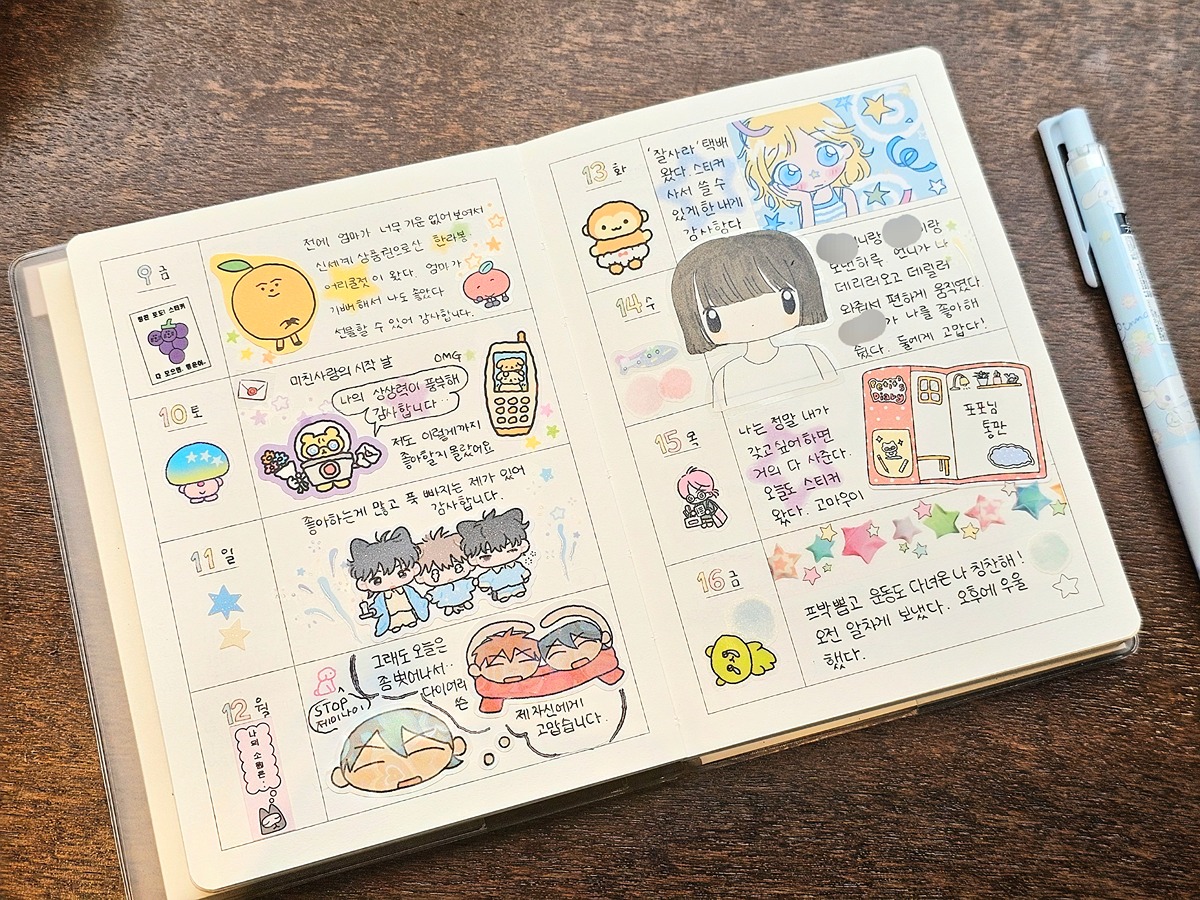 9 금
전에 엄마가 너무 기운 없어보여서
신세계 상품권으로산 한라봉
어리굴젓이 왔다. 엄마가
기뻐해서 나도 좋았다
선물할 수 있어 감사합니다.
10 토
미친사랑의 시작 날
OMG
나의 상상력이 풍부해
감사합니다..
저도 이렇게까지
좋아할지 몰랐어요
11 일
좋아하는게 많고 푹 빠지는 제가 있어
감사합니다.
12 월
나의 소원은..
STOP
제미나이
그래도 오늘은
좀 벗어나서..
다이어리
쓴
제 자신에게
고맙습니다.
13 화
'잘사라' 택배
왔다. 스티커
사서 쓸 수
있게한 내게
감사함다
14 수
니랑 이랑
보낸하루. 언니가 나
데리러오고 데릴러
와줘서 편하게 움직였다.
가 나를 좋아해
줬다. 둘에게 고맙다!
15 목
나는 정말 내가
갖고싶어하면
거의 다 사준다.
오늘도 스티커
왔다. 고마우이
Diary
포포님
통판
16 금
프박뽑고 운동도 다녀온 나 칭찬해!
오전 알차게 보냈다. 오후에 우울
했다.